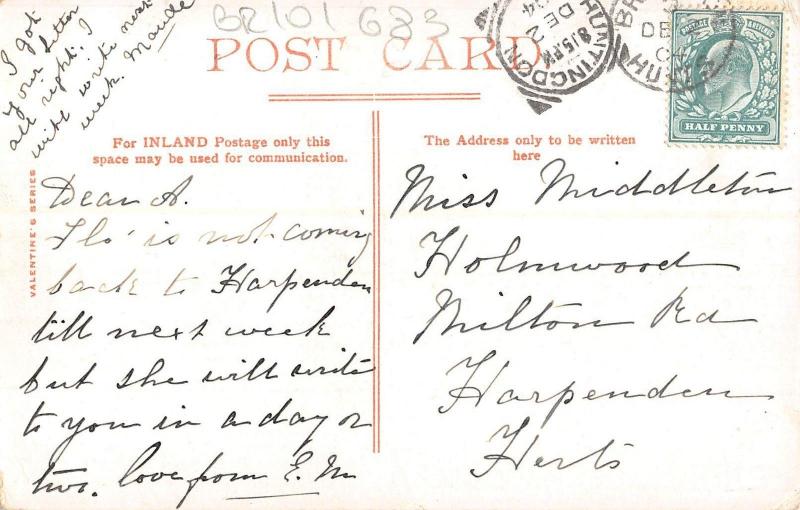 BR101 683
I got
your letter
all right. I
will write next
week. Maude
POST CARD
HUNTINGDON
8.15 PM
DE 2
04
DE
04
HUNTS
POSTAGE REVENUE
HALF PENNY
For INLAND Postage only this
space may be used for communication.
The Address only to be written
here
VALENTINE'S SERIES
Dear A.
Flo' is not coming
back to Harpenden
till next week
but she will write
to you in a day or
two. love from E. M
Miss Middleton
Holmwood
Milton Rd
Harpenden
Herts